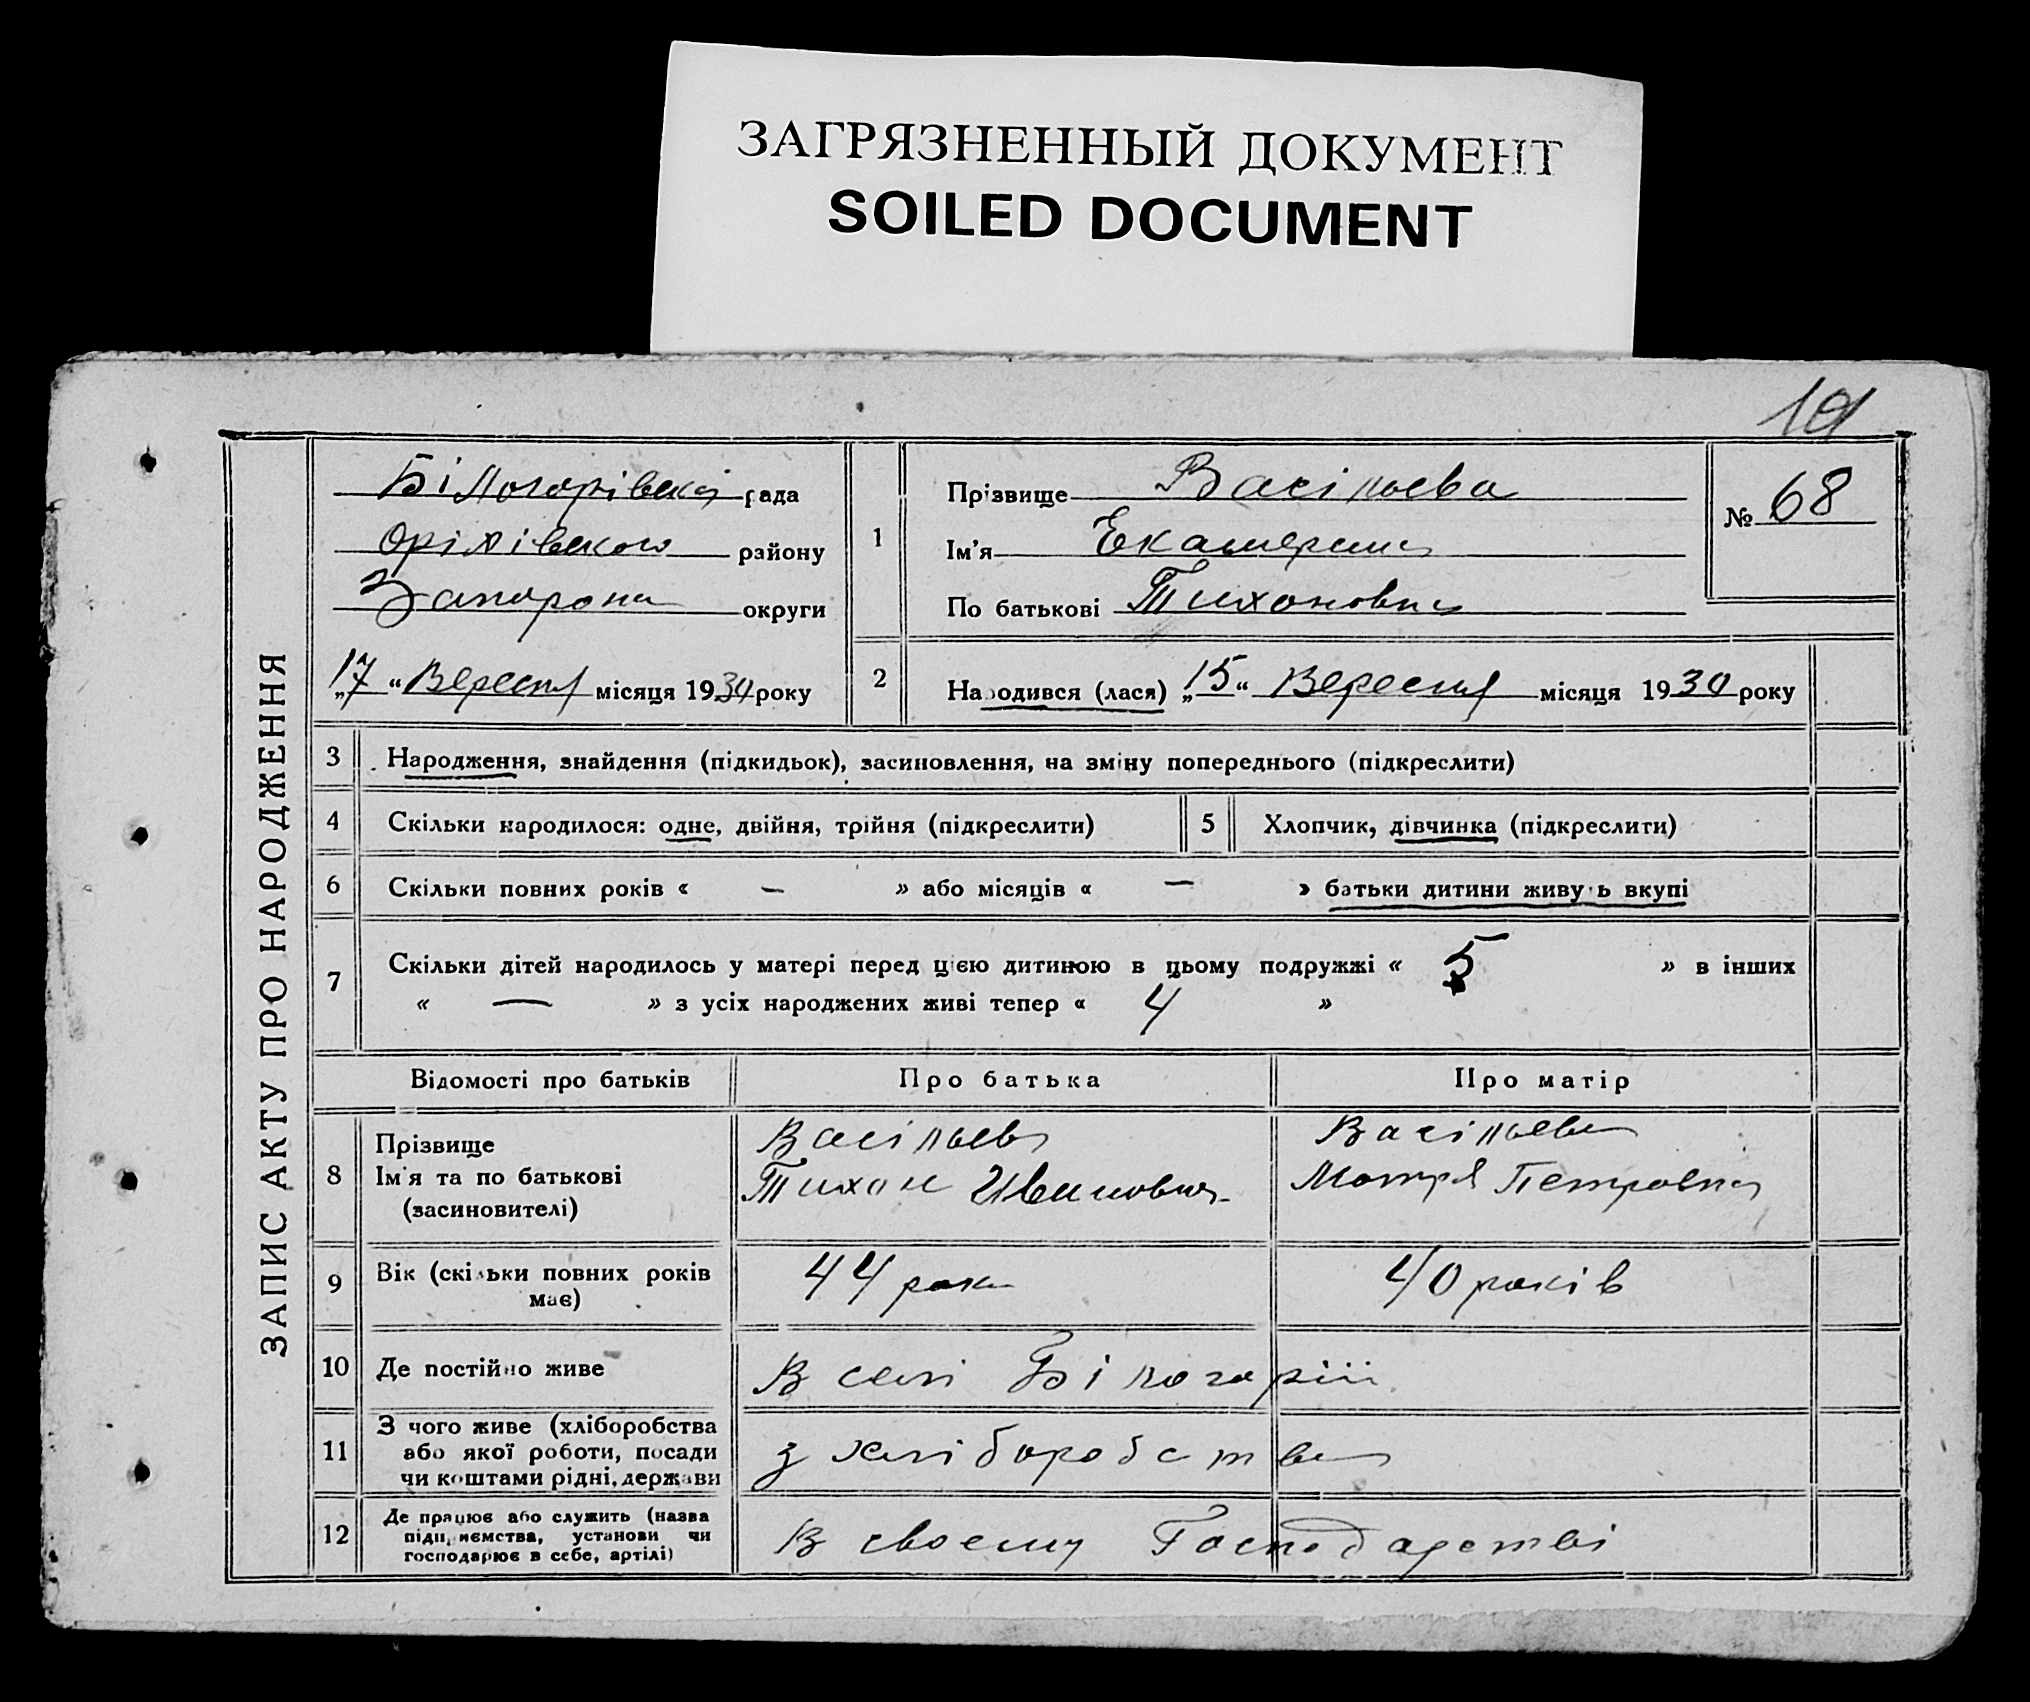 ЗАГРЯЗНЕННЫЙ ДОКУМЕНТ
SOILED DOCUMENT
ЗАПИС АКТУ ПРО НАРОДЖЕННЯ
Білогорівска рада
Оріхівского району
Запорож округи
„17“ Вересня місяця 1930 року
1
Прізвище Васільєва
Ім'я Екатерина
По батькові Тихоновна
№ 68
2 Народився (лася) „15“ Вересня місяця 1930 року
3 Народження, знайдення (підкидьок), засиновлення, на зміну попереднього (підкреслити)
4 Скільки народилося: одне, двійня, трійня (підкреслити) 5 Хлопчик, дівчинка (підкреслити)
6 Скільки повних років « — » або місяців « — » батьки дитини живуть вкупі
7 Скільки дітей народилось у матері перед цією дитиною в цьому подружжі « 5 » в інших
« — » з усіх народжених живі тепер « 4 »
Відомості про батьків Про батька Про матір
8 Прізвище Васільєв Васільєва
Ім'я та по батькові Тихон Иванович Мотря Петровна
(засиновителі)
9 Вік (скільки повних років має) 44 роки 40 років
10 Де постійно живе В селі Білогоріі
11 З чого живе (хліборобства
або якої роботи, посади
чи коштами рідні, держави з хліборобства
12 Де працює або служить (назва
підприємства, установи чи
господарює в себе, артілі) В своєму Господарстві